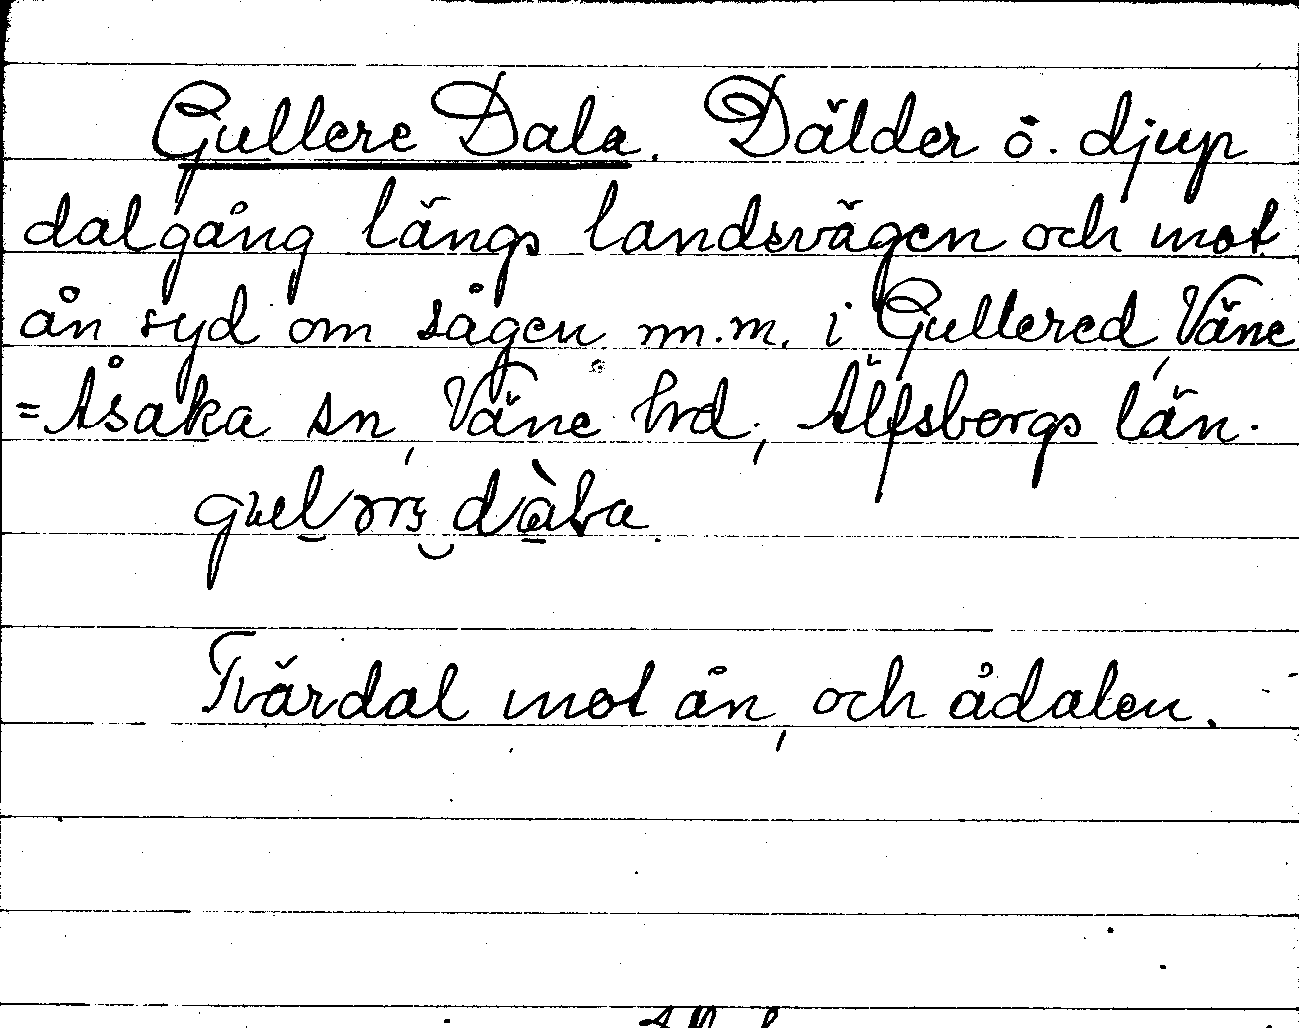 Gullere Dala. Dälder o. djup
dalgång längs landsvägen och mot
ån syd om sågen m.m. i Gullered, Väne
=Åsaka sn, Väne hrd, Älfsborgs län.
Tvärdal mot ån, och ådalen.